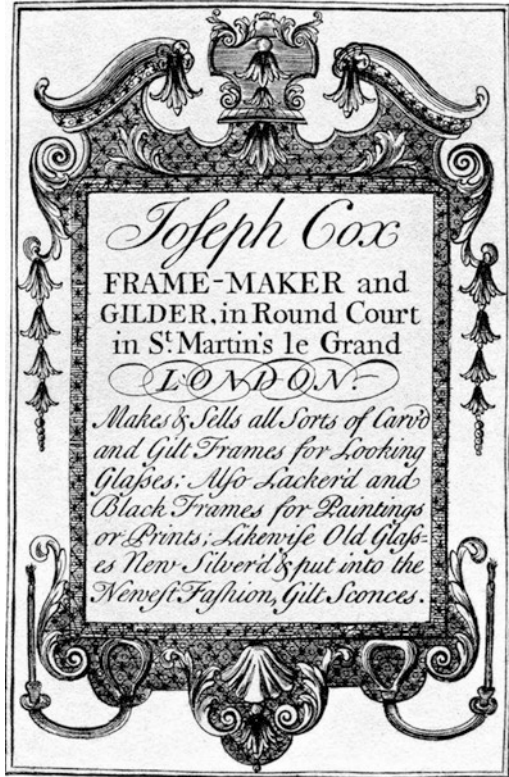 Joſeph Cox
FRAME-MAKER and
GILDER, in Round Court
in St. Martin's le Grand
LONDON.
Makes & Sells all Sorts of Carv'd
and Gilt Frames for Looking
Glaſses; Alſo Lacker'd and
Black Frames for Paintings
or Prints; Likewiſe Old Glaſs=
es New Silver'd & put into the
Neweſt Faſhion, Gilt Sconces.